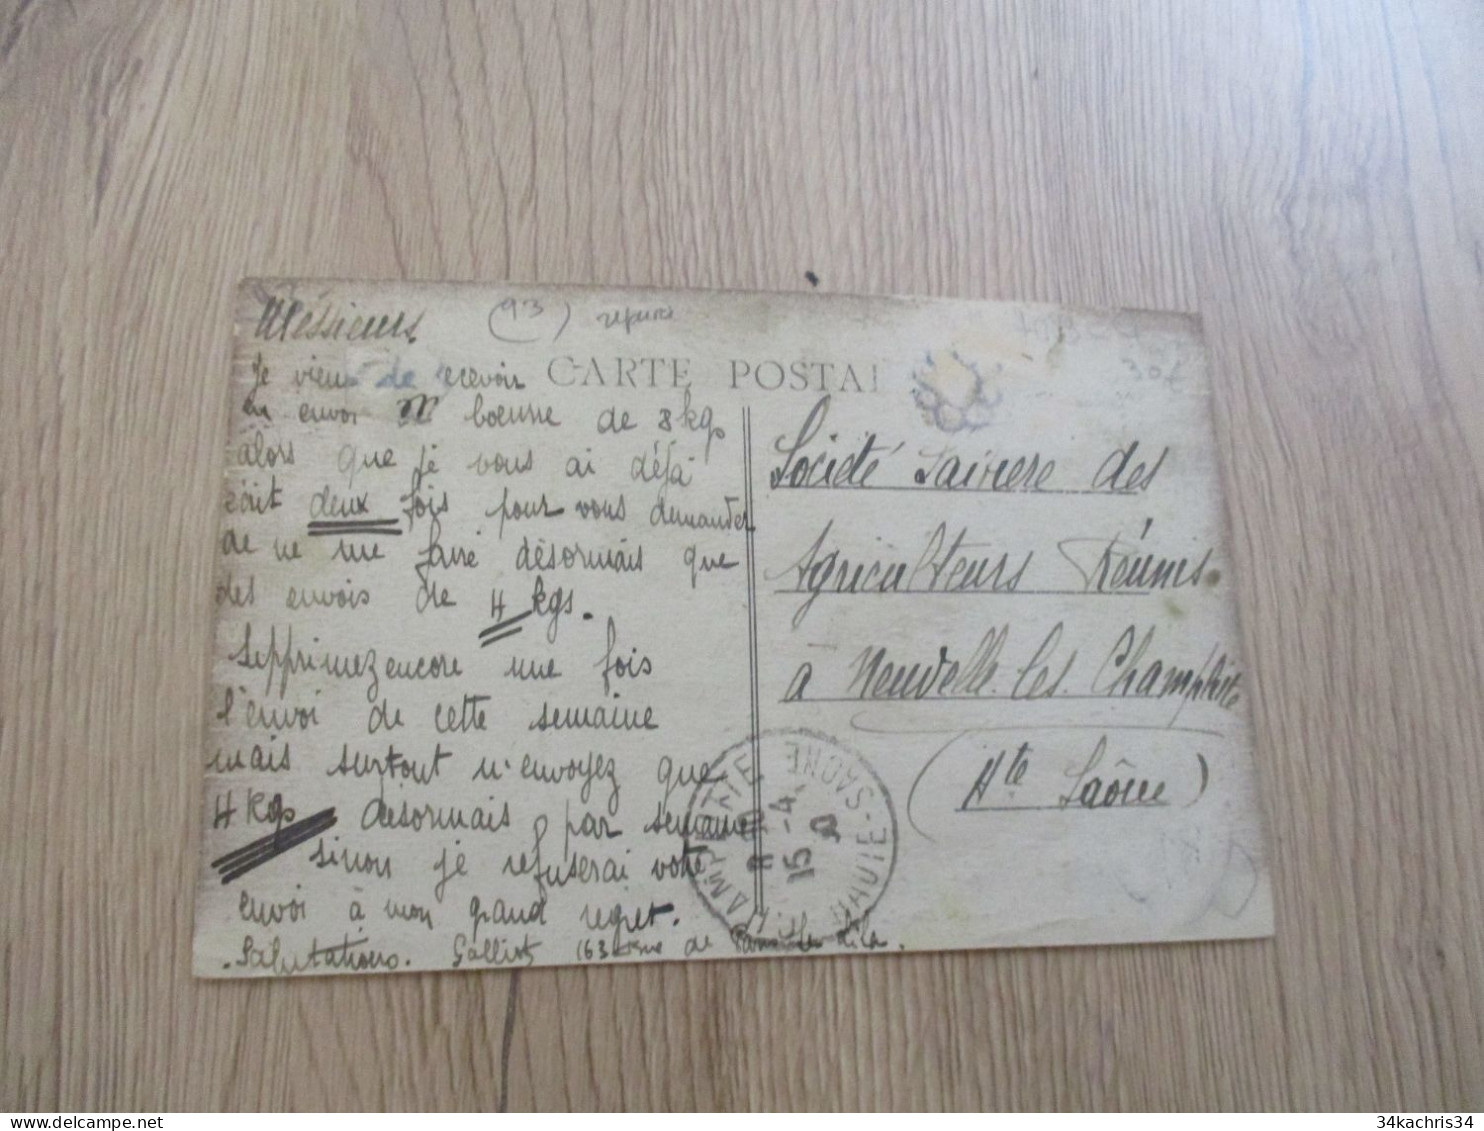 Messieurs
(93)
CARTE POSTAL
Je viens de recevoir
un envoi de beurre de 8 kgs
alors que je vous ai déjà
écrit deux fois pour vous demander
de ne me faire désormais que
des envois de 4 kgs.
Supprimez encore une fois
l'envoi de cette semaine
mais surtout n'envoyez que
4 kgs désormais par semaine
sinon je refuserai votre
envoi à mon grand regret.
Salutations. 163 rue de Paris Les Lilas.
Société Laitiere des
Agriculteurs Réunis.
à Neuvelle. les. Champlitte
(Hte Saône)
CHAMPLITTE
15-4
HAUTE-SAONE
34kachris34